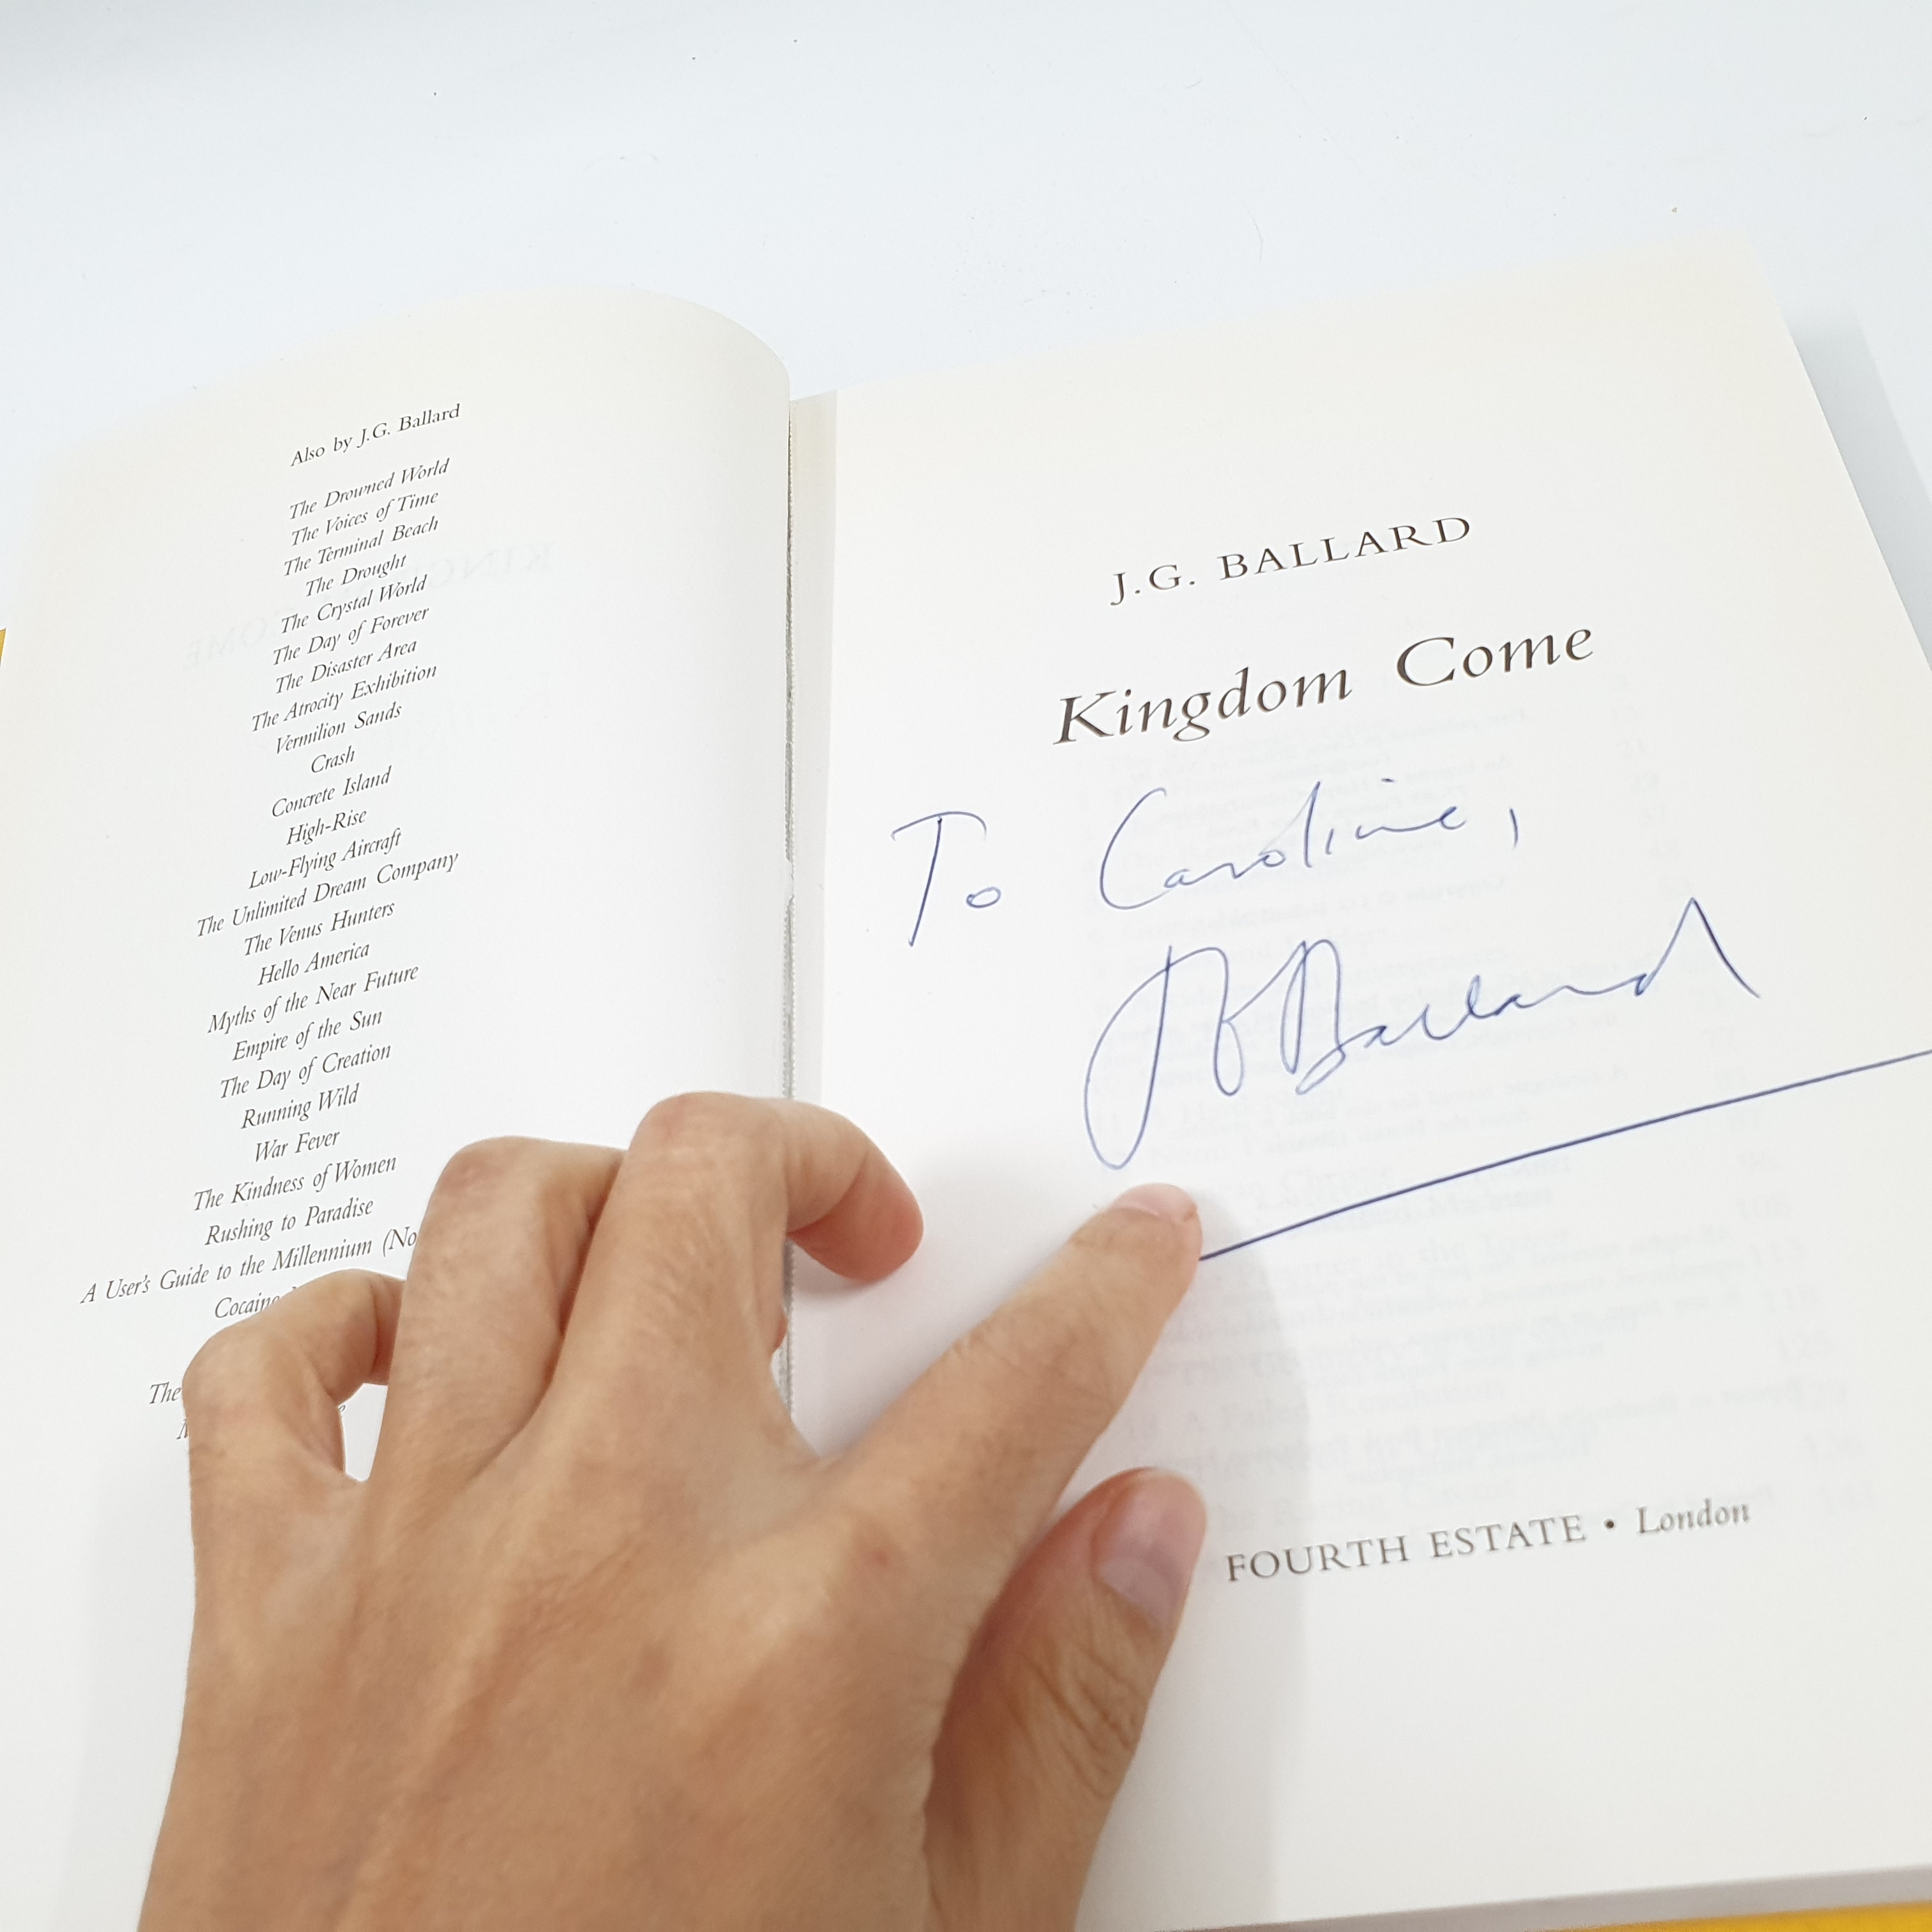 Also by J.G. Ballard
The Drowned World
The Voices of Time
The Terminal Beach
The Drought
The Crystal World
The Day of Forever
The Disaster Area
The Atrocity Exhibition
Vermilion Sands
Crash
Concrete Island
High-Rise
Low-Flying Aircraft
The Unlimited Dream Company
The Venus Hunters
Hello America
Myths of the Near Future
Empire of the Sun
The Day of Creation
Running Wild
War Fever
The Kindness of Women
Rushing to Paradise
A User's Guide to the Millennium (No
Cocaine
The
J.G. BALLARD
Kingdom Come
To Caroline,
JG Ballard
FOURTH ESTATE • London